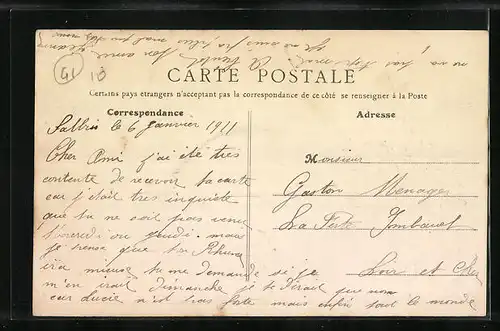 41
CARTE POSTALE
Certains pays étrangers n'acceptant pas la correspondance de ce côté se renseigner à la Poste
Correspondance
Salbris le 6 Janvier 1911
Cher Ami j'ai été très
contente de recevoir ta carte
car j'était très inquiete
que tu ne soit pas venu
ou jeudi. mais
je pense que ton Rhume
ira mieux tu me demande si je
m'en irait dimanche je te dirait que non
car Lucie n'est pas forte mais enfin tout le monde
Adresse
Monsieur
Gaston Menager
La Ferté Imbault
Loir et Cher